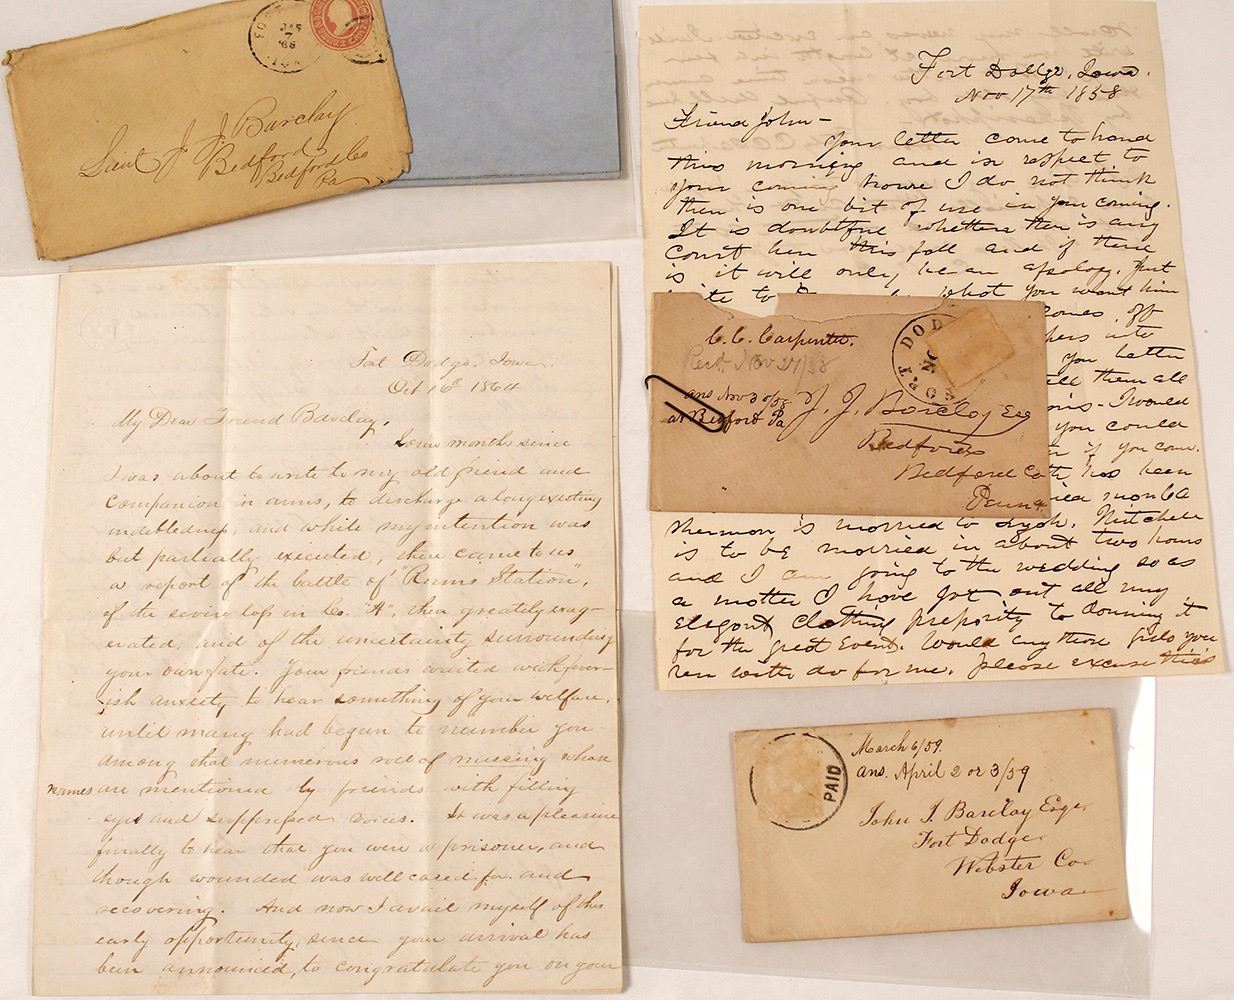 JAN
7
'65
Lieut J J Barclay
Bedford
Bedford Co
Pa
Fort Dodge, Iowa.
Oct 16th 1864
My Dear Friend Barclay,
Some months since
I was about to write to my old friend and
companion in arms, to discharge a long existing
indebtedness, and while my intention was
but partially executed, there came to us
a report of the battle of "Reams Station",
of the severe loss in Co. "A", then greately exag-
erated, and of the uncertainty surrounding
your own fate. Your friends waited with fever-
ish anxiety to hear something of your welfare,
until many had begun to number you
among that numerous roll of missing whose
names are mentioned by friends with filling
eyes and suppressed voices. It was a pleasure
finally to hear that you were a prisoner, and
though wounded was well cared for and
recovering. And now I avail myself of this
early opportunity, since your arrival has
been announced, to congratulate you on your
Fort Dodge, Iowa.
Nov 17th 1858
Friend John—
Your letter come to hand
this morning and in respect to
your coming home I do not think
ther is one bit of use in you coming.
It is doubtful whether ther is any
Court her this fall and if there
is it will only be an apology. Just
what you want him
you better
all them all
I would
you could
if you come.
has been
Sherman is married to Lysh. Mitchell
is to be married in about two hours
and I am going to the wedding so as
a matter I have got out all my
elegant clothing preparity to donning it
for the great event. Would any those girls you
run with do for me. please excuse this
C. C. Carpenter.
Recd Nov 27/58
ans Nov 30/58
at Bedford Pa
FORT DODGE
NOV
J. J. Barclay Esq
Bedford
Bedford Co
Penna
PAID
March 6/59.
ans. April 2 or 3/59
John J. Barclay Esqr
Fort Dodge
Webster Co
Iowa